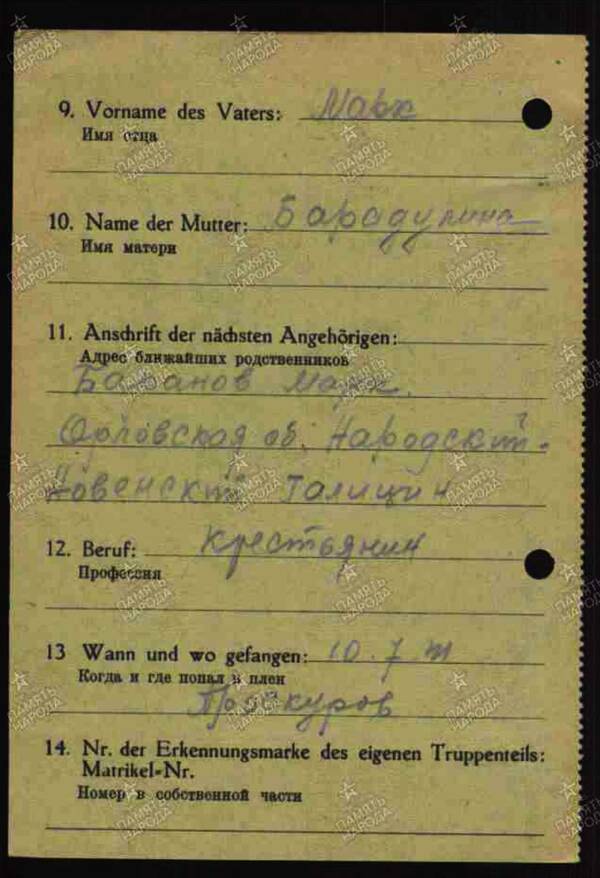 9. Vorname des Vaters: Марк
Имя отца
10. Name der Mutter: Барадулина
Имя матери
11. Anschrift der nächsten Angehörigen:
Адрес ближайших родственников
Баранов Марк.
Орловская об. Народский-
Новенский Галицин
12. Beruf: Крестьянин
Профессия
13 Wann und wo gefangen: 10. 7.
Когда и где попал в плен
Проскуров
14. Nr. der Erkennungsmarke des eigenen Truppenteils:
Matrikel-Nr.
Номер в собственной части
ПАМЯТЬ
НАРОДА